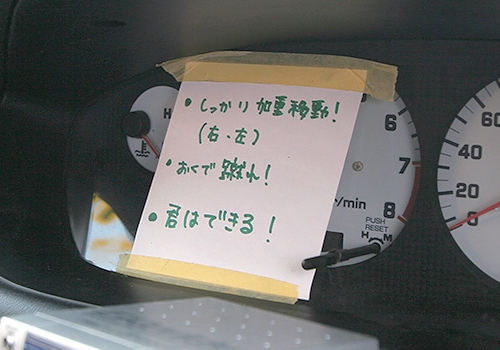 • しっかり 加重移動!
(右、左)
• おくで 蹴れ!
• 君はできる!
H
6
7
8
r/min
PUSH
RESET
H M
60
40
20
0